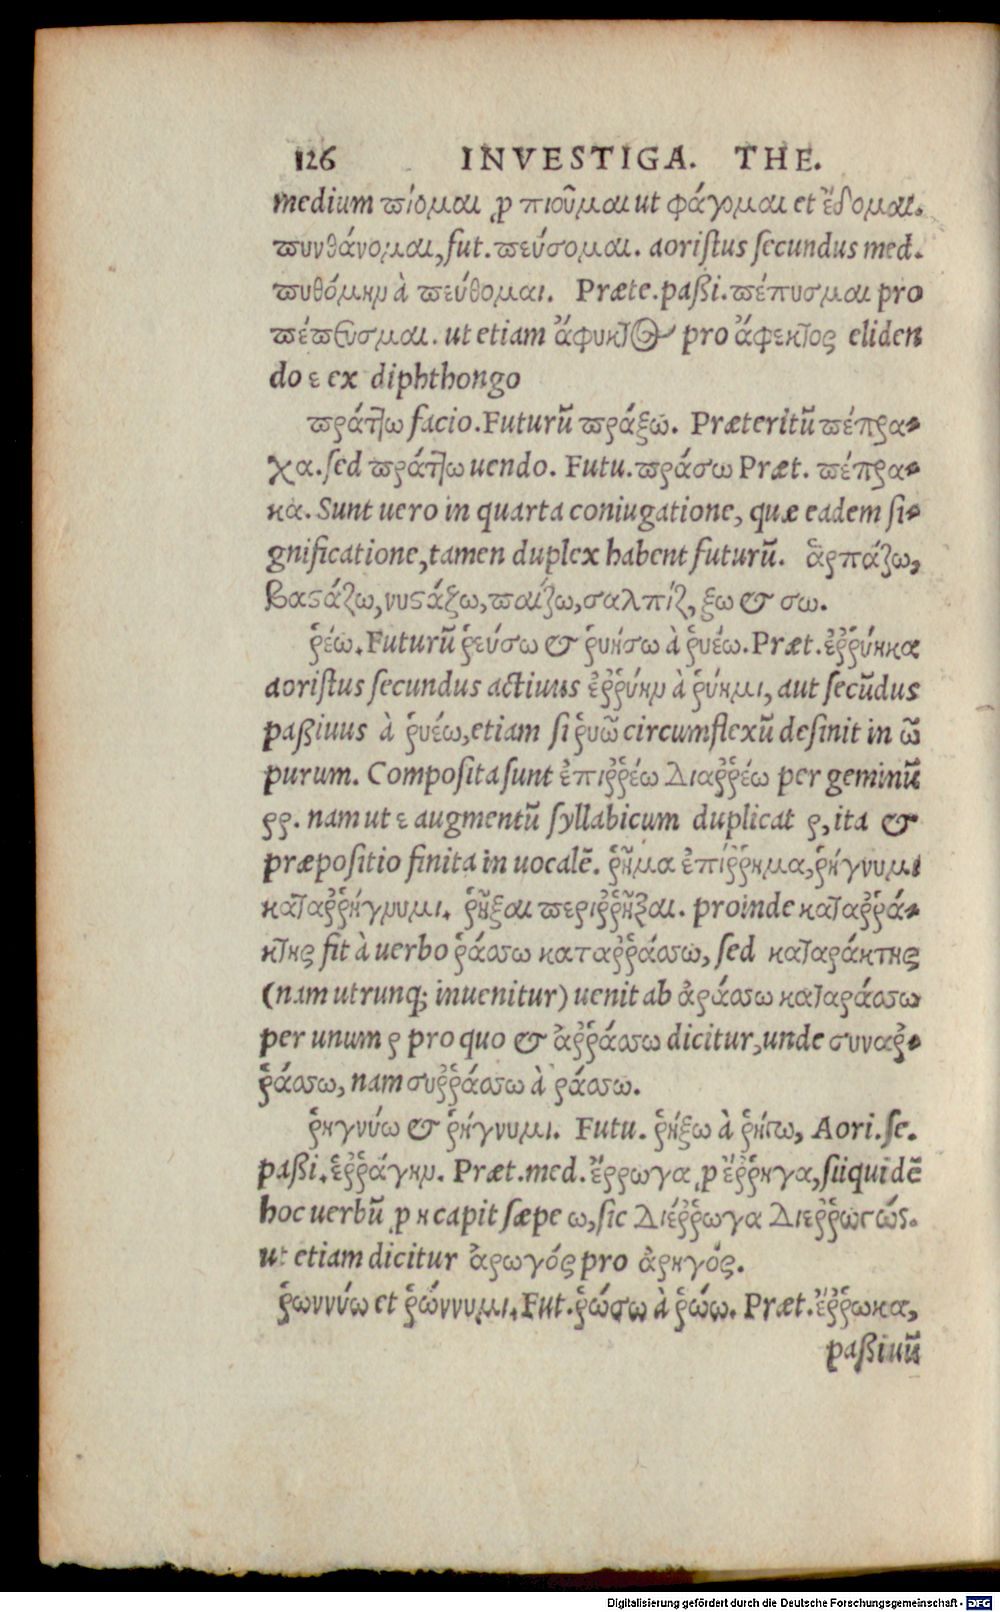 126 INVESTIGA. THE.
medium πίομαι ꝓ πιοῦμαι ut φάγομαι et ἔδομαι.
πυνθάνομαι, fut. πεύσομαι. aoristus secundus med.
πυθόμην à πεύθομαι. Præte. paßi. πέπυσμαι pro
πέπευσμαι. ut etiam ἄφυκτος pro ἄφεκτος eliden
do ε ex diphthongo
πράττω facio. Futurũ πράξω. Præteritũ πέπρα-
χα. sed πράττω uendo. Futu. πράσω Præt. πέπρα-
κα. Sunt uero in quarta coniugatione, quæ eadem si-
gnificatione, tamen duplex habent futurũ. ἁρπάζω,
βαστάζω, νυστάζω, παίζω, σαλπίζ, ξω & σω.
ῥέω. Futurũ ῥεύσω & ῥυήσω à ῥυέω. Præt. ἐῤῥύηκα
aoristus secundus actiuus ἐῤῥύην à ῥύημι, aut secũdus
paßiuus à ῥυέω, etiam si ῥυῶ circumflexũ desinit in ῶ
purum. Composita sunt ἐπιῤῥέω διαῤῥέω per geminũ
ρρ. nam ut ε augmentũ syllabicum duplicat ρ, ita &
præpositio finita in uocalẽ. ῥῆμα ἐπίῤῥημα, ῥήγνυμι
καταῤῥήγνυμι. ῥῆξαι περιῤῥῆξαι. proinde καταῤῥά-
κτης fit à uerbo ῥάσσω καταῤῥάσσω, sed καταράκτης
(nam utrunq; inuenitur) uenit ab ἀράσσω καταράσσω
per unum ρ pro quo & ἀῤῥάσσω dicitur, unde συναῤ-
ῥάσσω, nam συῤῥάσσω à ῥάσσω.
ῥηγνύω & ῥήγνυμι. Futu. ῥήξω à ῥήσσω, Aori. se.
paßi. ἐῤῥάγην. Præt. med. ἔρρωγα ꝓ ἔῤῥηγα, siquidẽ
hoc uerbũ ꝓ η capit sæpe ω, sic διέῤῥωγα διεῤῥωγώς.
ut etiam dicitur ἀρωγός pro ἀρηγός.
ῥωννύω et ῥώννυμι. Fut. ῥώσω à ῥώω. Præt. ἔῤῥωκα,
paßiuũ
Digitalisierung gefördert durch die Deutsche Forschungsgemeinschaft - DFG